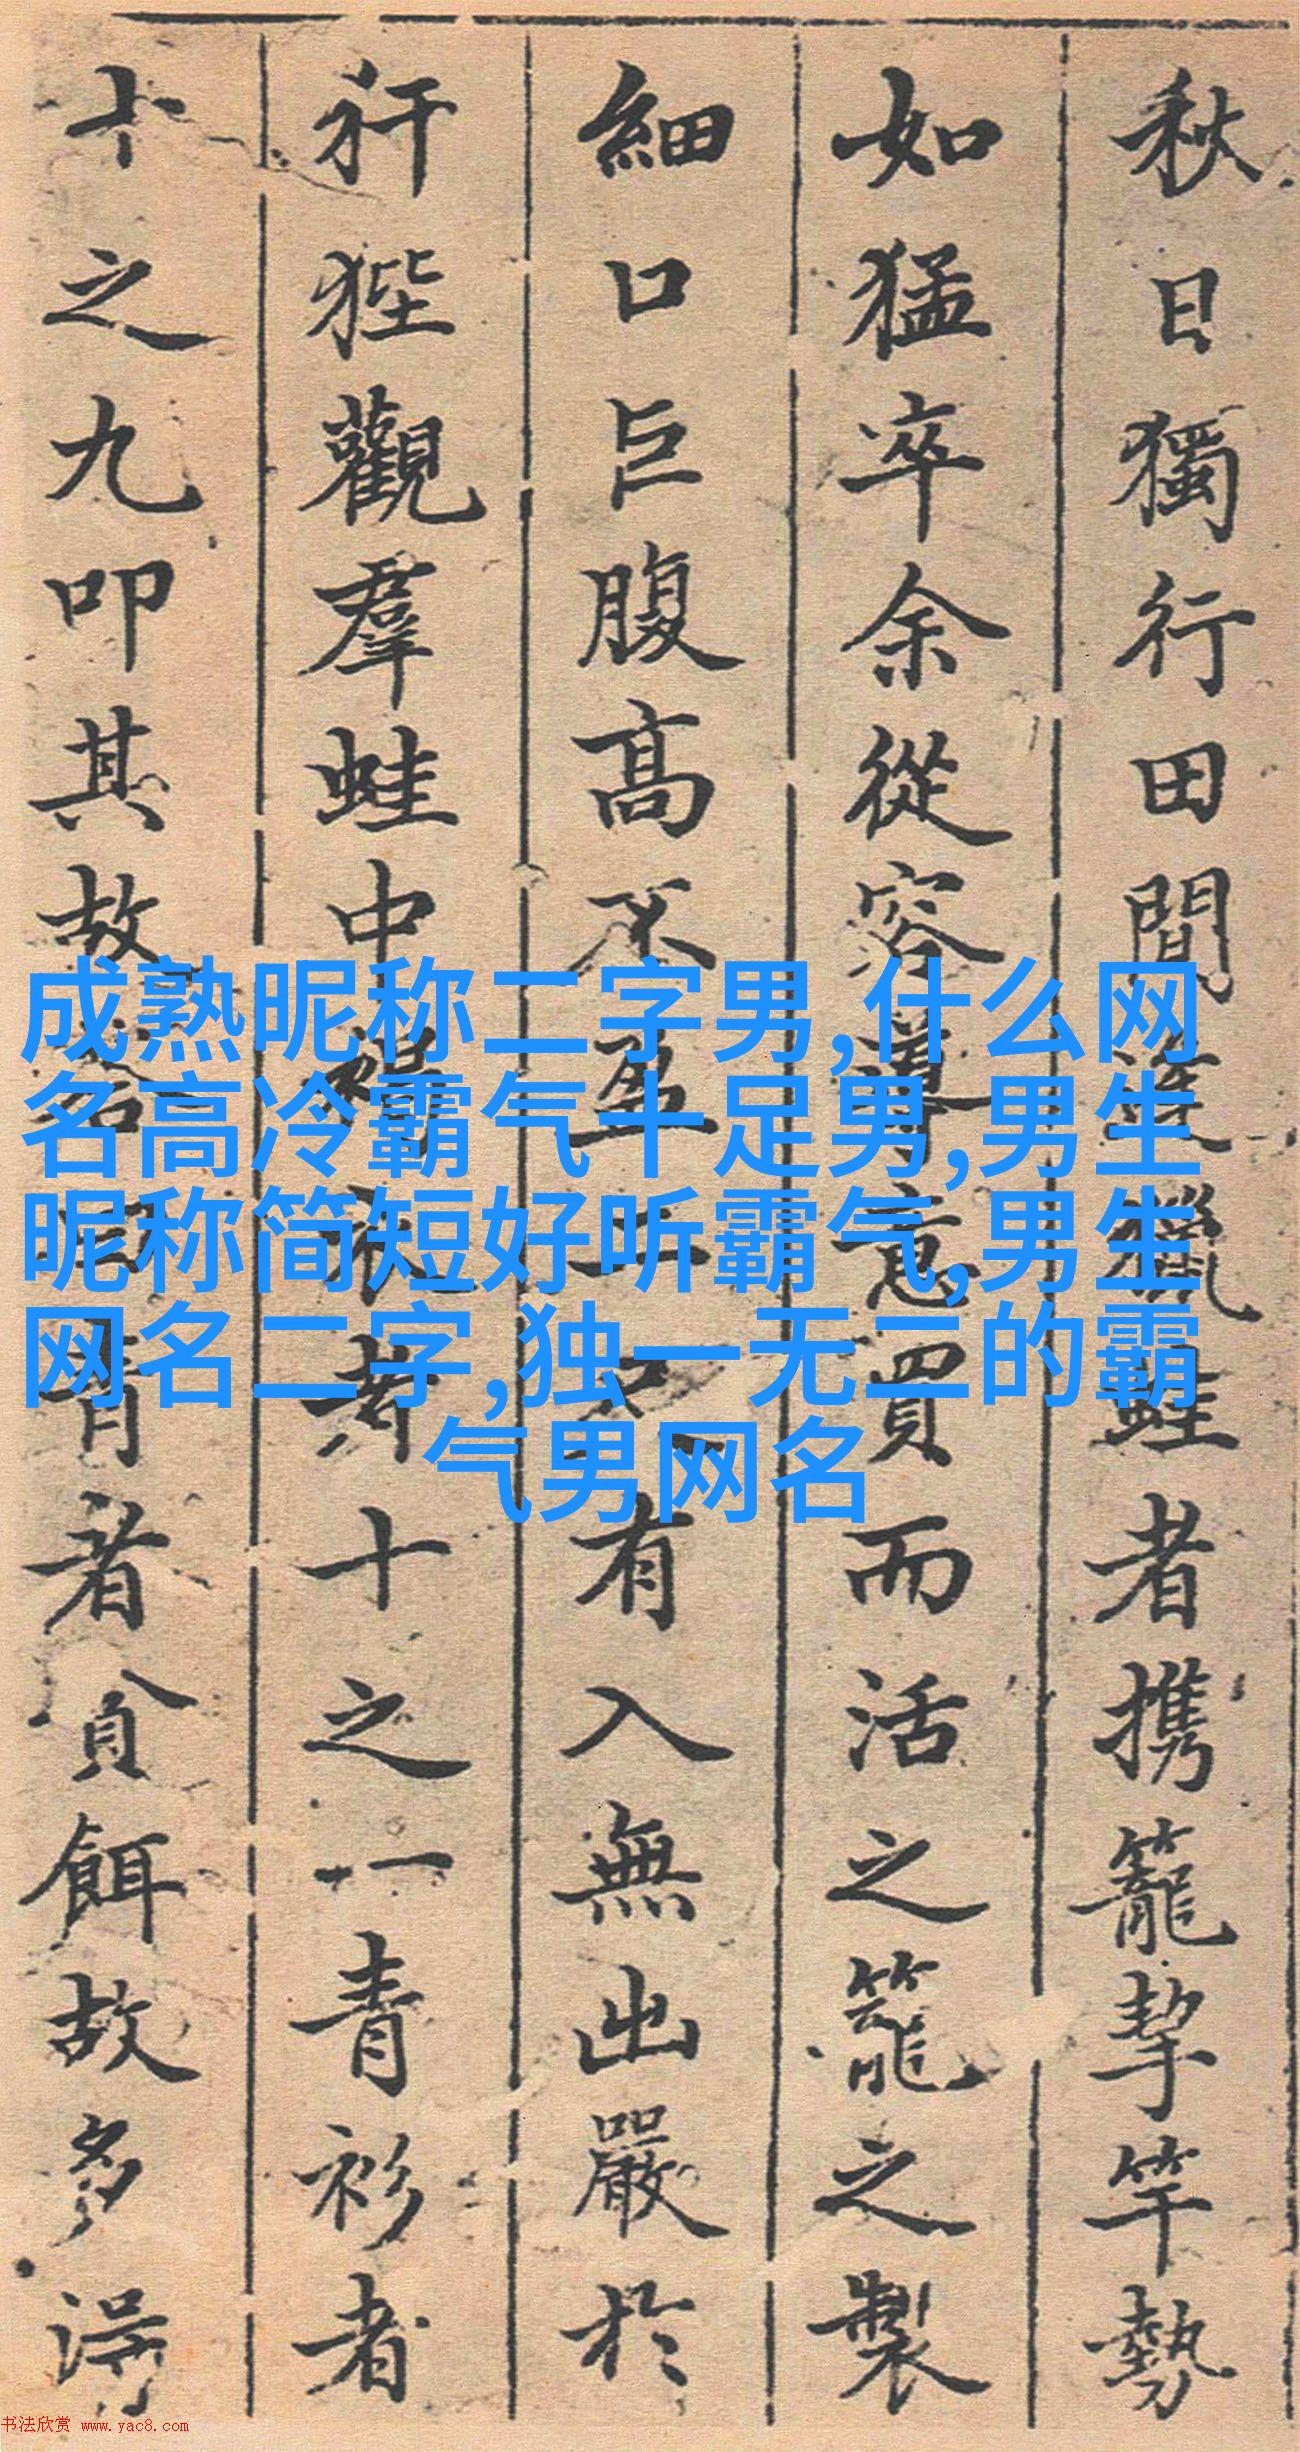 秋日獨行田間獵蛙者携籠挈竿勢
如猛卒余從容意買而活之籠之製
細口巨腹高不盈二有入無出嚴於
犴狴觀羣蛙中褐衣者十之一青衫者
十之九叩其故曰青者貪餌故多得
成熟昵称二字男,什么网
名高冷霸气十足男,男生
昵称简短好听霸气,男生
网名二字,独一无二的霸
气男网名
书法欣赏 www.yac8.com